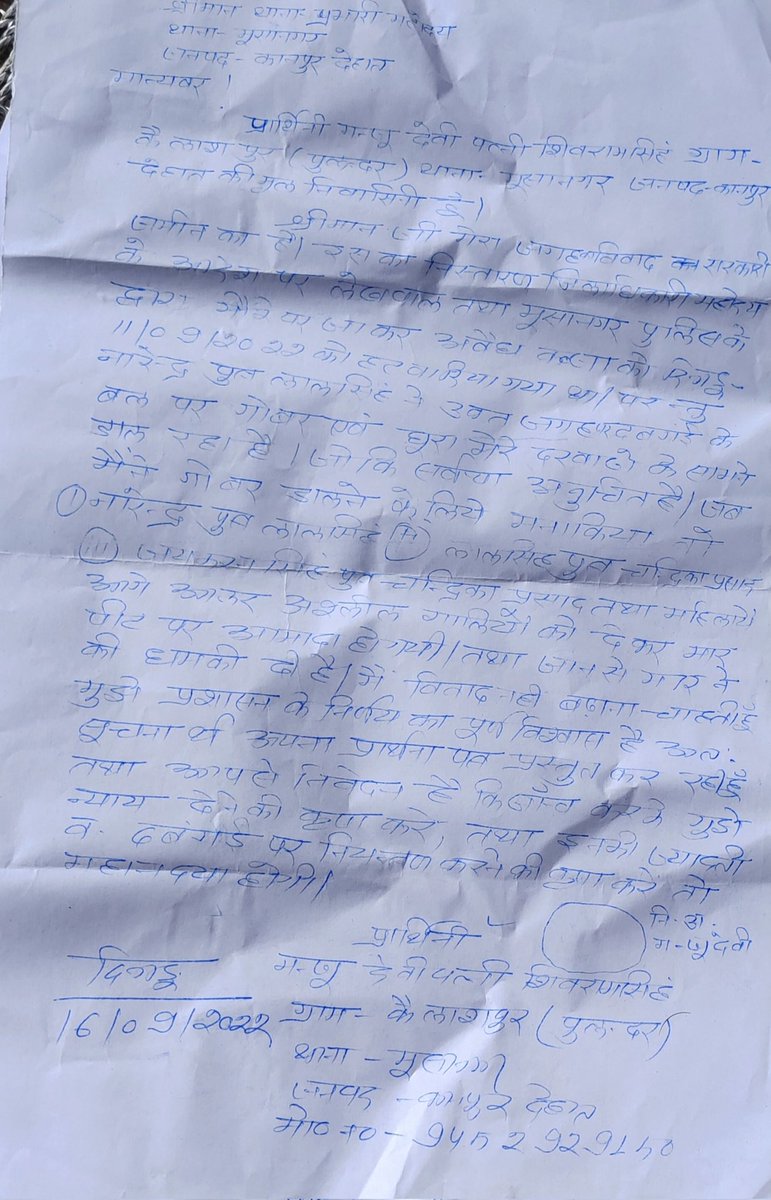 श्रीमान थाना- प्रभारी महोदय
थाना- मूसानगर
जनपद- कानपुर देहात
मान्यवर !
प्रार्थिनी मन्जू देवी पत्नी शिवरामसिंह ग्राम-
कैलाशपुर (पुलन्दर) थाना- मूसानगर जनपद-कानपुर
देहात की मूल निवासिनी है।
श्रीमान जी मेरा जगहकाविवाद सरकारी
जमीन का है। इस का निस्तारण जिलाधिकारी महोदय
के आदेश पर लेखपाल तथा मूसानगर पुलिस के
द्वारा मौके पर जा कर अवैध कब्जा को दिनाङ्क-
11/09/2022 को हटवा दिया गया था। परन्तु
नरेन्द्र पुत्र लालसिंह ने उक्त जगह पर दबंगई के
बल पर गोबर एवं घूरा मेरे दरवाजे के सामने
डाल रहा है। जो कि सर्वथा अनुचित है। जब
मैंने गोबर डालने के लिये मना किया तो
(I) नरेन्द्र पुत्र लालसिंह (II) लालसिंह पुत्र चन्द्रिका प्रसाद
(III) जयकरन सिंह पुत्र चन्द्रिका प्रसाद तथा महिलायें
आगे आकर अश्लील गालियों को दे कर मार
पीट पर आमादा हो गयी। तथा जान से मार ने
की धमकी दी है। मैं विवाद नही बढ़ाना चाहती हूँ
मुझे प्रशासन के निर्णय का पूर्ण विश्वास है अतः
सूचनार्थ अपना प्रार्थना पत्र प्रस्तुत कर रही हूँ
तथा आप से निवेदन है कि जाँच करके मुझे
न्याय देने की कृपा करें, तथा इनकी ज्यादती
व दबंगई पर नियन्त्रण करने की कृपा करें तो
महान दया होगी।
प्रार्थिनी
नि. अ.
मन्जू देवी
दिनाङ्क
16/09/2022
मन्जू देवी पत्नी शिवरामसिंह
ग्राम- कैलाशपुर (पुलन्दर)
थाना - मूसानगर
जनपद - कानपुर देहात
मो० न० - 9452929150